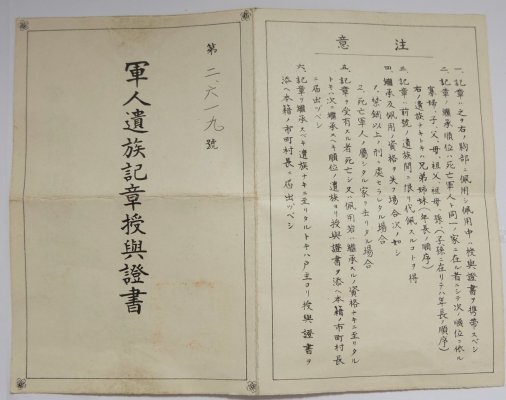 注意
一、記章ハ之ヲ右ノ胸部ニ佩用シ佩用中ハ授與證書ヲ携帶スベシ
二、記章ノ繼承順位ハ死亡軍人ト同一ノ家ニ在ル者ニシテ次ノ順位ニ依ル
寡婦、子、父、母、祖父、祖母、孫（子孫ニ在リテハ年長ノ順序）
右ノ遺族ナキトキハ兄弟姉妹（年長ノ順序）
三、記章ハ前號ノ遺族間ニ限リ代佩スルコトヲ得
四、繼承及佩用ノ資格ヲ失フ場合次ノ如シ
1、禁錮以上ノ刑ニ處セラレタル場合
2、死亡軍人ノ屬シタル家ヲ去リタル場合
五、記章ヲ受有スル者死亡シ又ハ佩用若ハ繼承スルノ資格ナキニ至リタル
トキハ次ニ繼承スベキ順位ノ遺族ヨリ授與證書ヲ添ヘ本籍ノ市町村長
ニ届出ヅベシ
六、記章ヲ繼承スベキ遺族ナキニ至リタルトキハ戸主ヨリ授與證書ヲ
添ヘ本籍ノ市町村長ニ届出ヅベシ
第二、六一九號
軍人遺族記章授與證書